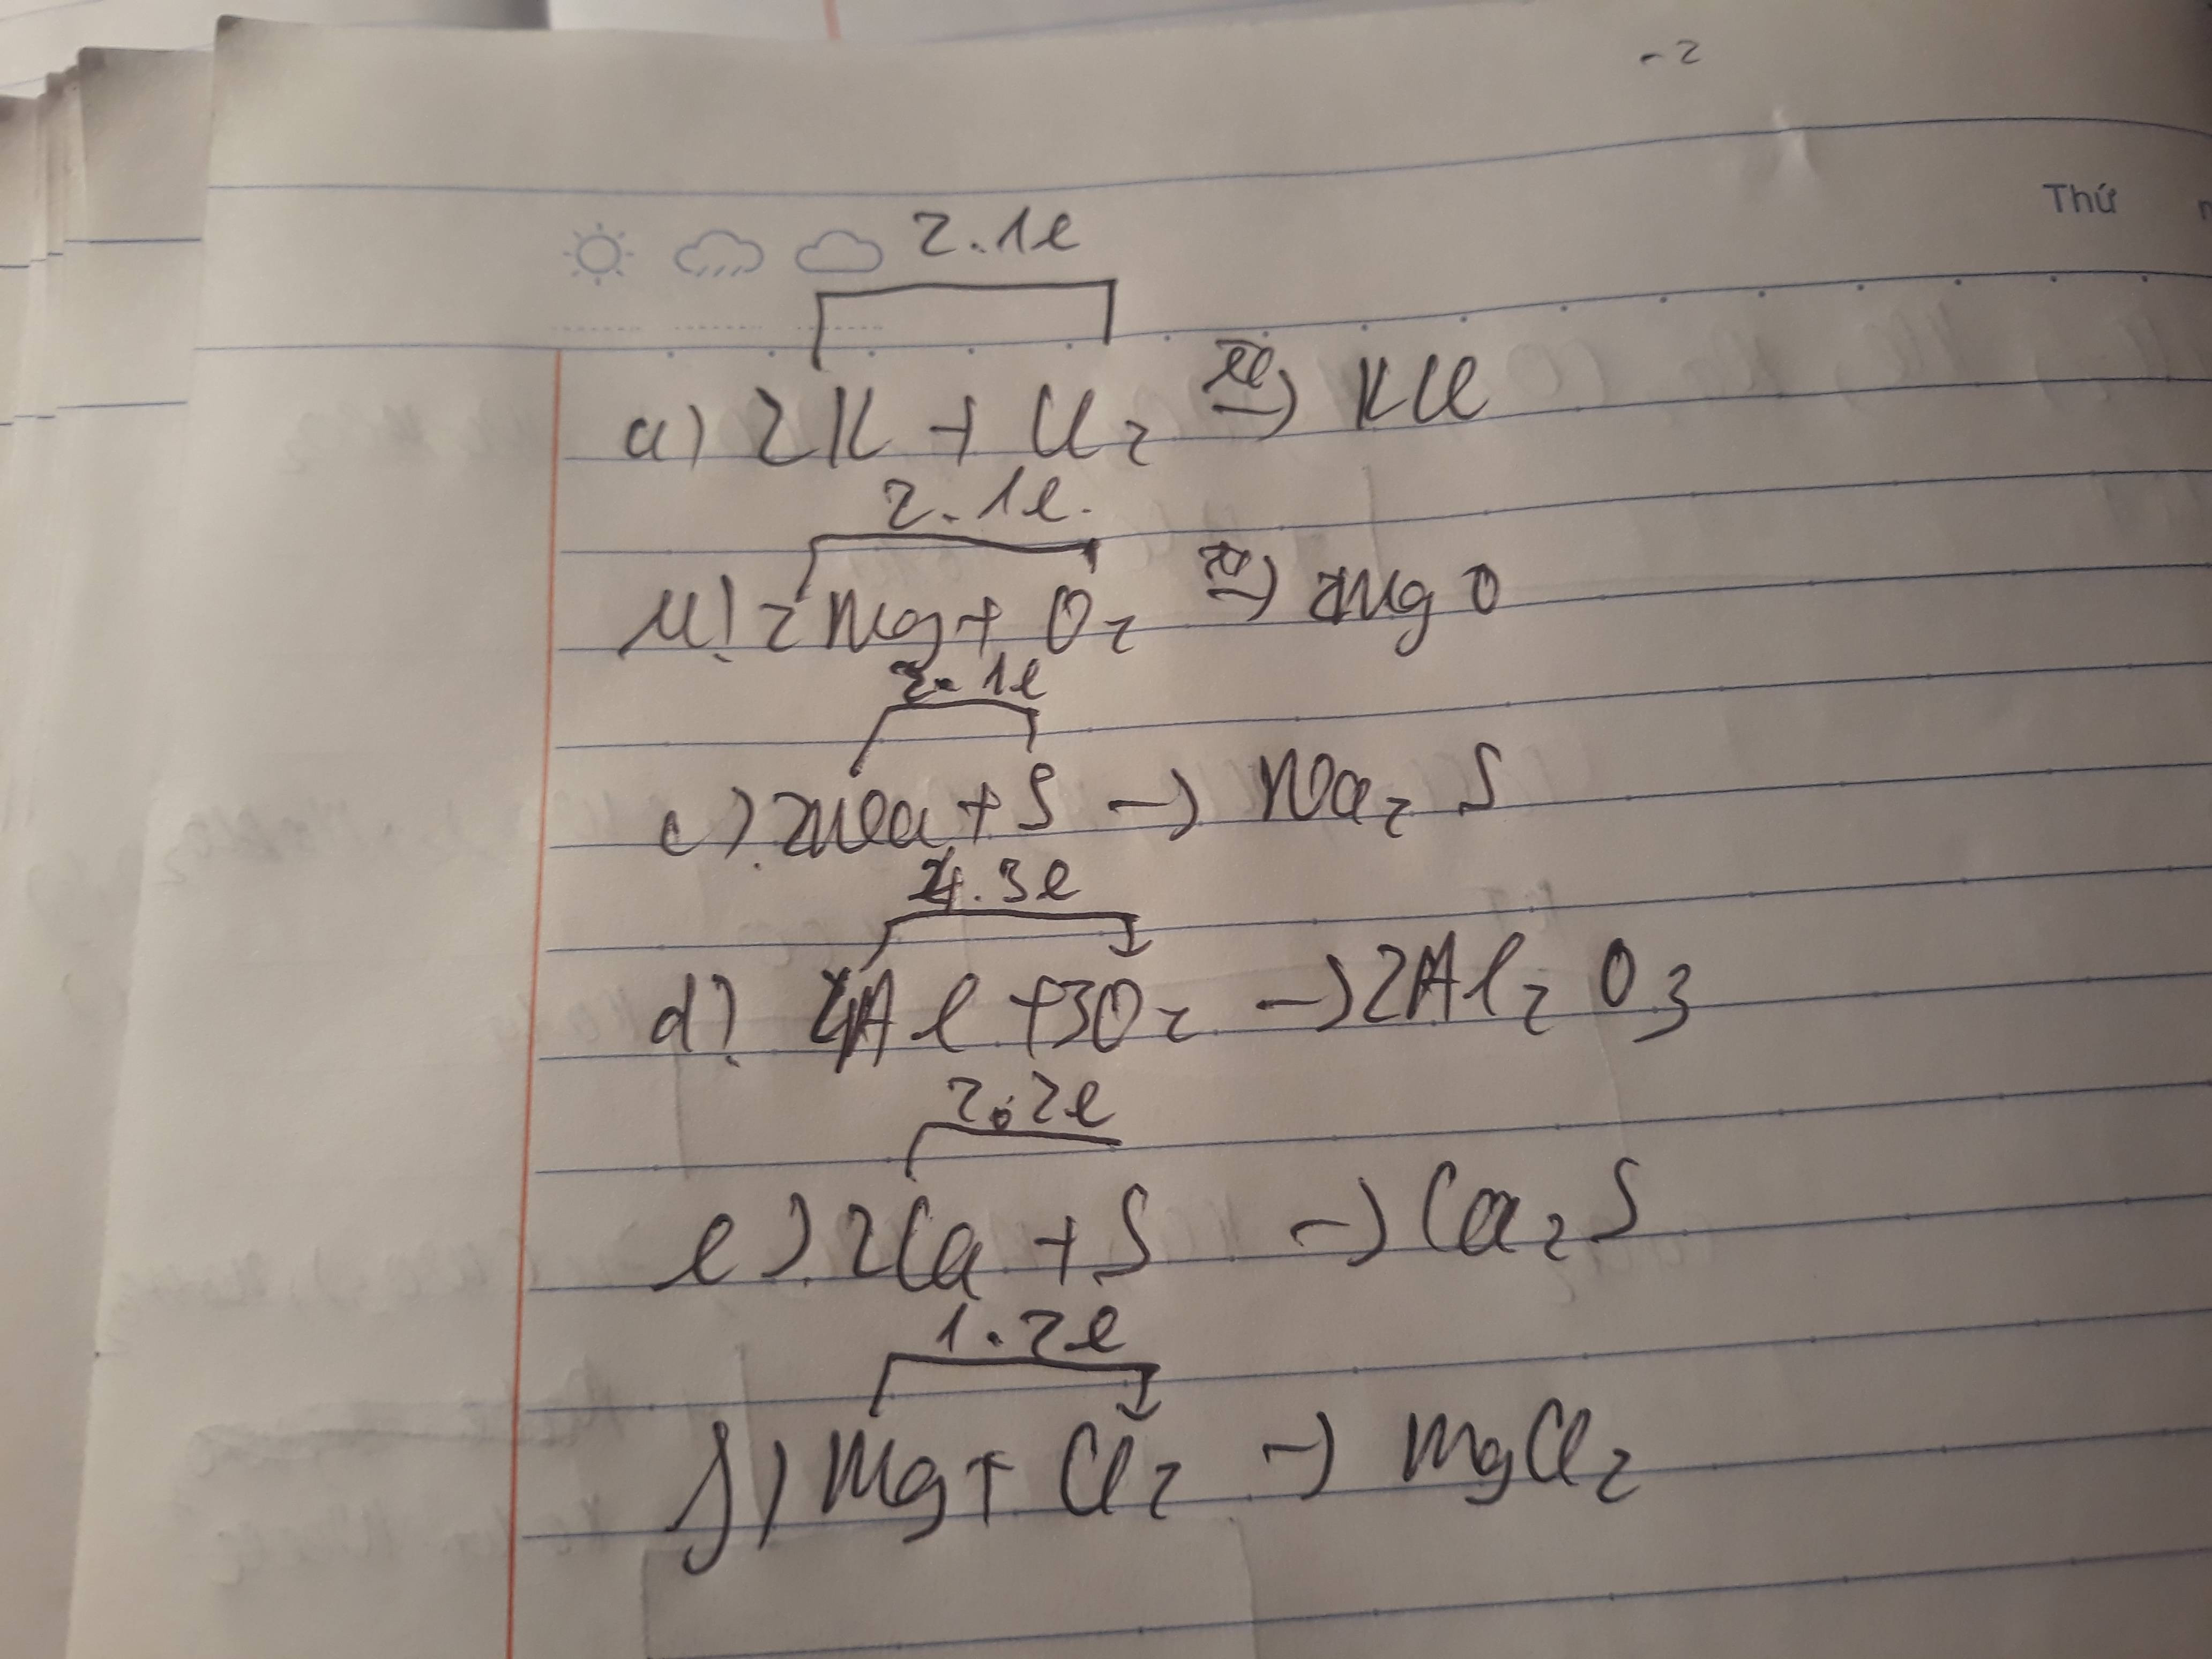 -2
Thứ
2.1e
a) 2K + Cl2 → KCl
2.1e.
2Mg + O2 → 2MgO
2.1e
c) 2Na + S → Na2S
4.3e
d) 4Al + 3O2 → 2Al2O3
2.2e
e) 2Ca + S → Ca2S
1.2e
f) Mg + Cl2 → MgCl2